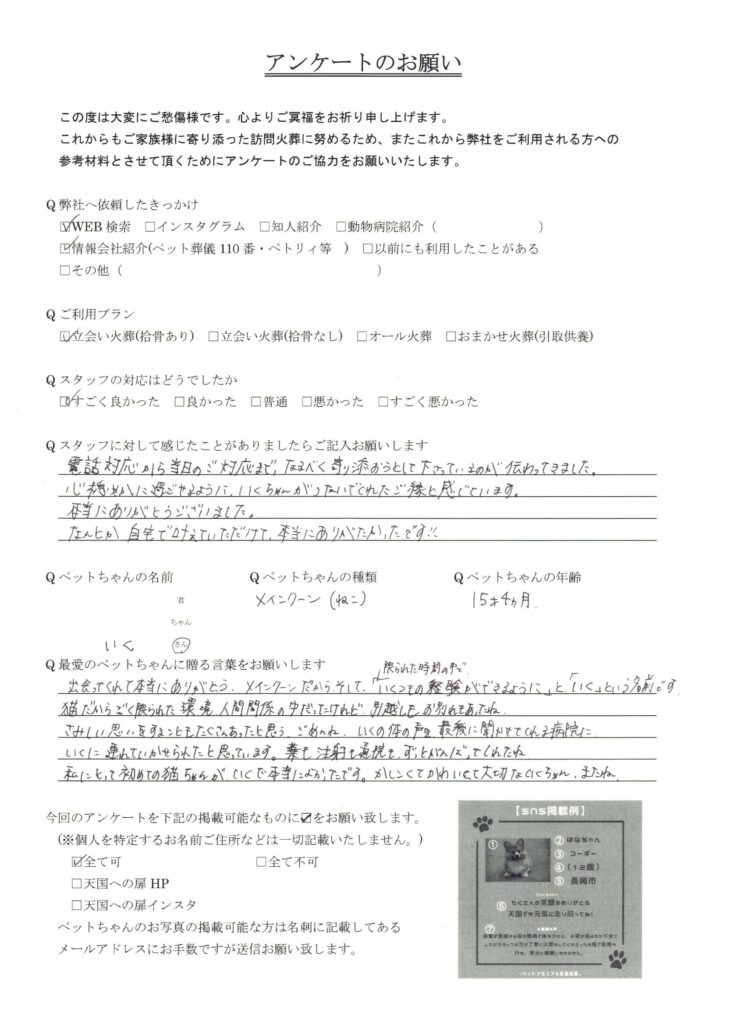 アンケートのお願い
この度は大変にご愁傷様です。心よりご冥福をお祈り申し上げます。
これからもご家族様に寄り添った訪問火葬に努めるため、またこれから弊社をご利用される方への
参考材料とさせて頂くためにアンケートのご協力をお願いいたします。
Q 弊社へ依頼したきっかけ
☑WEB 検索 □インスタグラム □知人紹介 □動物病院紹介（ ）
☑情報会社紹介(ペット葬儀 110 番・ペトリィ等 ) □以前にも利用したことがある
□その他（ ）
Q ご利用プラン
☑立会い火葬(拾骨あり) □立会い火葬(拾骨なし) □オール火葬 □おまかせ火葬(引取供養)
Q スタッフの対応はどうでしたか
☑すごく良かった □良かった □普通 □悪かった □すごく悪かった
Q スタッフに対して感じたことがありましたらご記入お願いします
電話対応から当日のご対応まで、なるべく寄り添おうとして下さっているのが伝わってきました。
心穏やかに過ごせるように、いくちゃんがつないでくれたご縁と感じています。
本当にありがとうございました。
なんとか自宅で叶えていただけて、本当にありがたかったです!!
Q ペットちゃんの名前 Q ペットちゃんの種類 Q ペットちゃんの年齢
君
ちゃん
さん
いく
メインクーン (ねこ)
15才4ヵ月
Q 最愛のペットちゃんに贈る言葉をお願いします
限られた時間の中で
出会ってくれて本当にありがとう。メインクーンだから、そして、「いくつもの経験ができるように」と、「いく」という名前です
猫だからごく限られた環境、人間関係の中だったけれど、引越しも、お別れもあったね
さみしい思いをすることもたくさんあったと思う。ごめんね。いくの体の声を、最後に聞かせてくれる病院に
いくに連れていかせられたと思っています。薬も注射も通院も、ずっとがんばってくれたね
私にとって初めての猫ちゃんが、いくで本当によかったです。かしこくてかわいくて大切ないくちゃん、またね。
今回のアンケートを下記の掲載可能なものに☑をお願い致します。
(※個人を特定するお名前ご住所などは一切記載いたしません。)
☑全て可 □全て不可
□天国への扉 HP
□天国への扉インスタ
ペットちゃんのお写真の掲載可能な方は名刺に記載してある
メールアドレスにお手数ですが送信お願い致します。
【sns掲載例】
①
② はなちゃん
③ コーギー
④ (12歳)
⑤ 長岡市
⑥ たくさんの笑顔をありがとう
天国でも元気に走り回ってね!
⑦